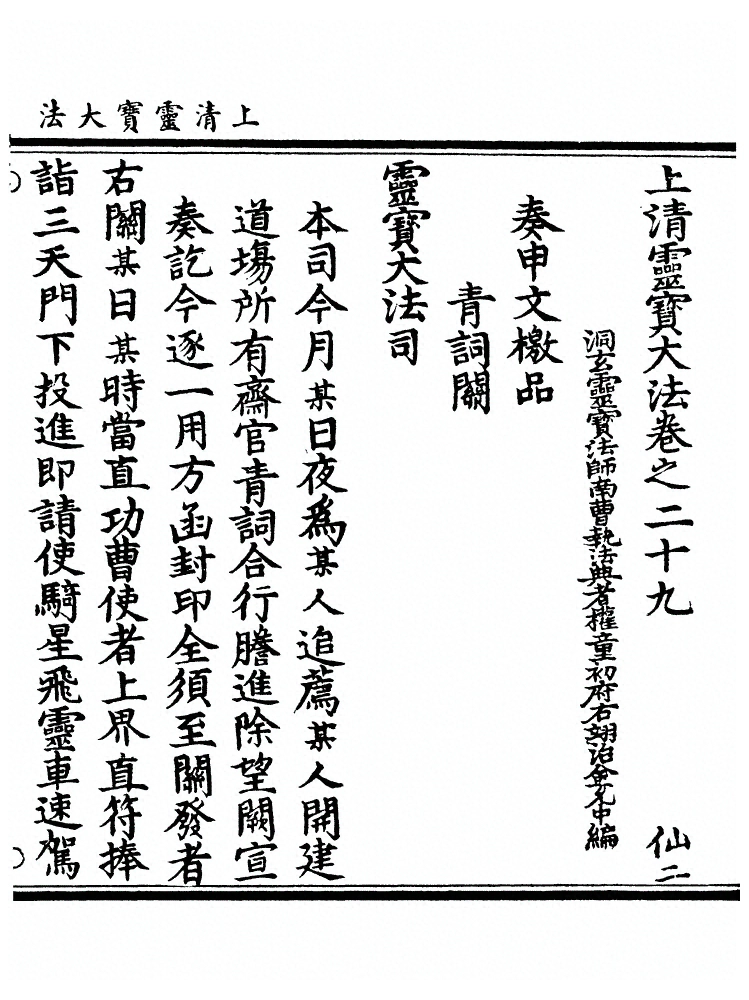 上清靈寶大法
上清靈寶大法卷之二十九　仙二
洞玄靈寶法師南曹執法典者權童初府右翊治金允中編
奏申文檄品
青詞關
靈寶大法司
本司今月某日夜爲某人追薦某人開建
道塲所有齋官青詞合行謄進除望闕宣
奏訖今逐一用方函封印全須至關發者
右關某日某時當直功曹使者上界直符捧
詣三天門下投進即請使騎星飛靈車速駕